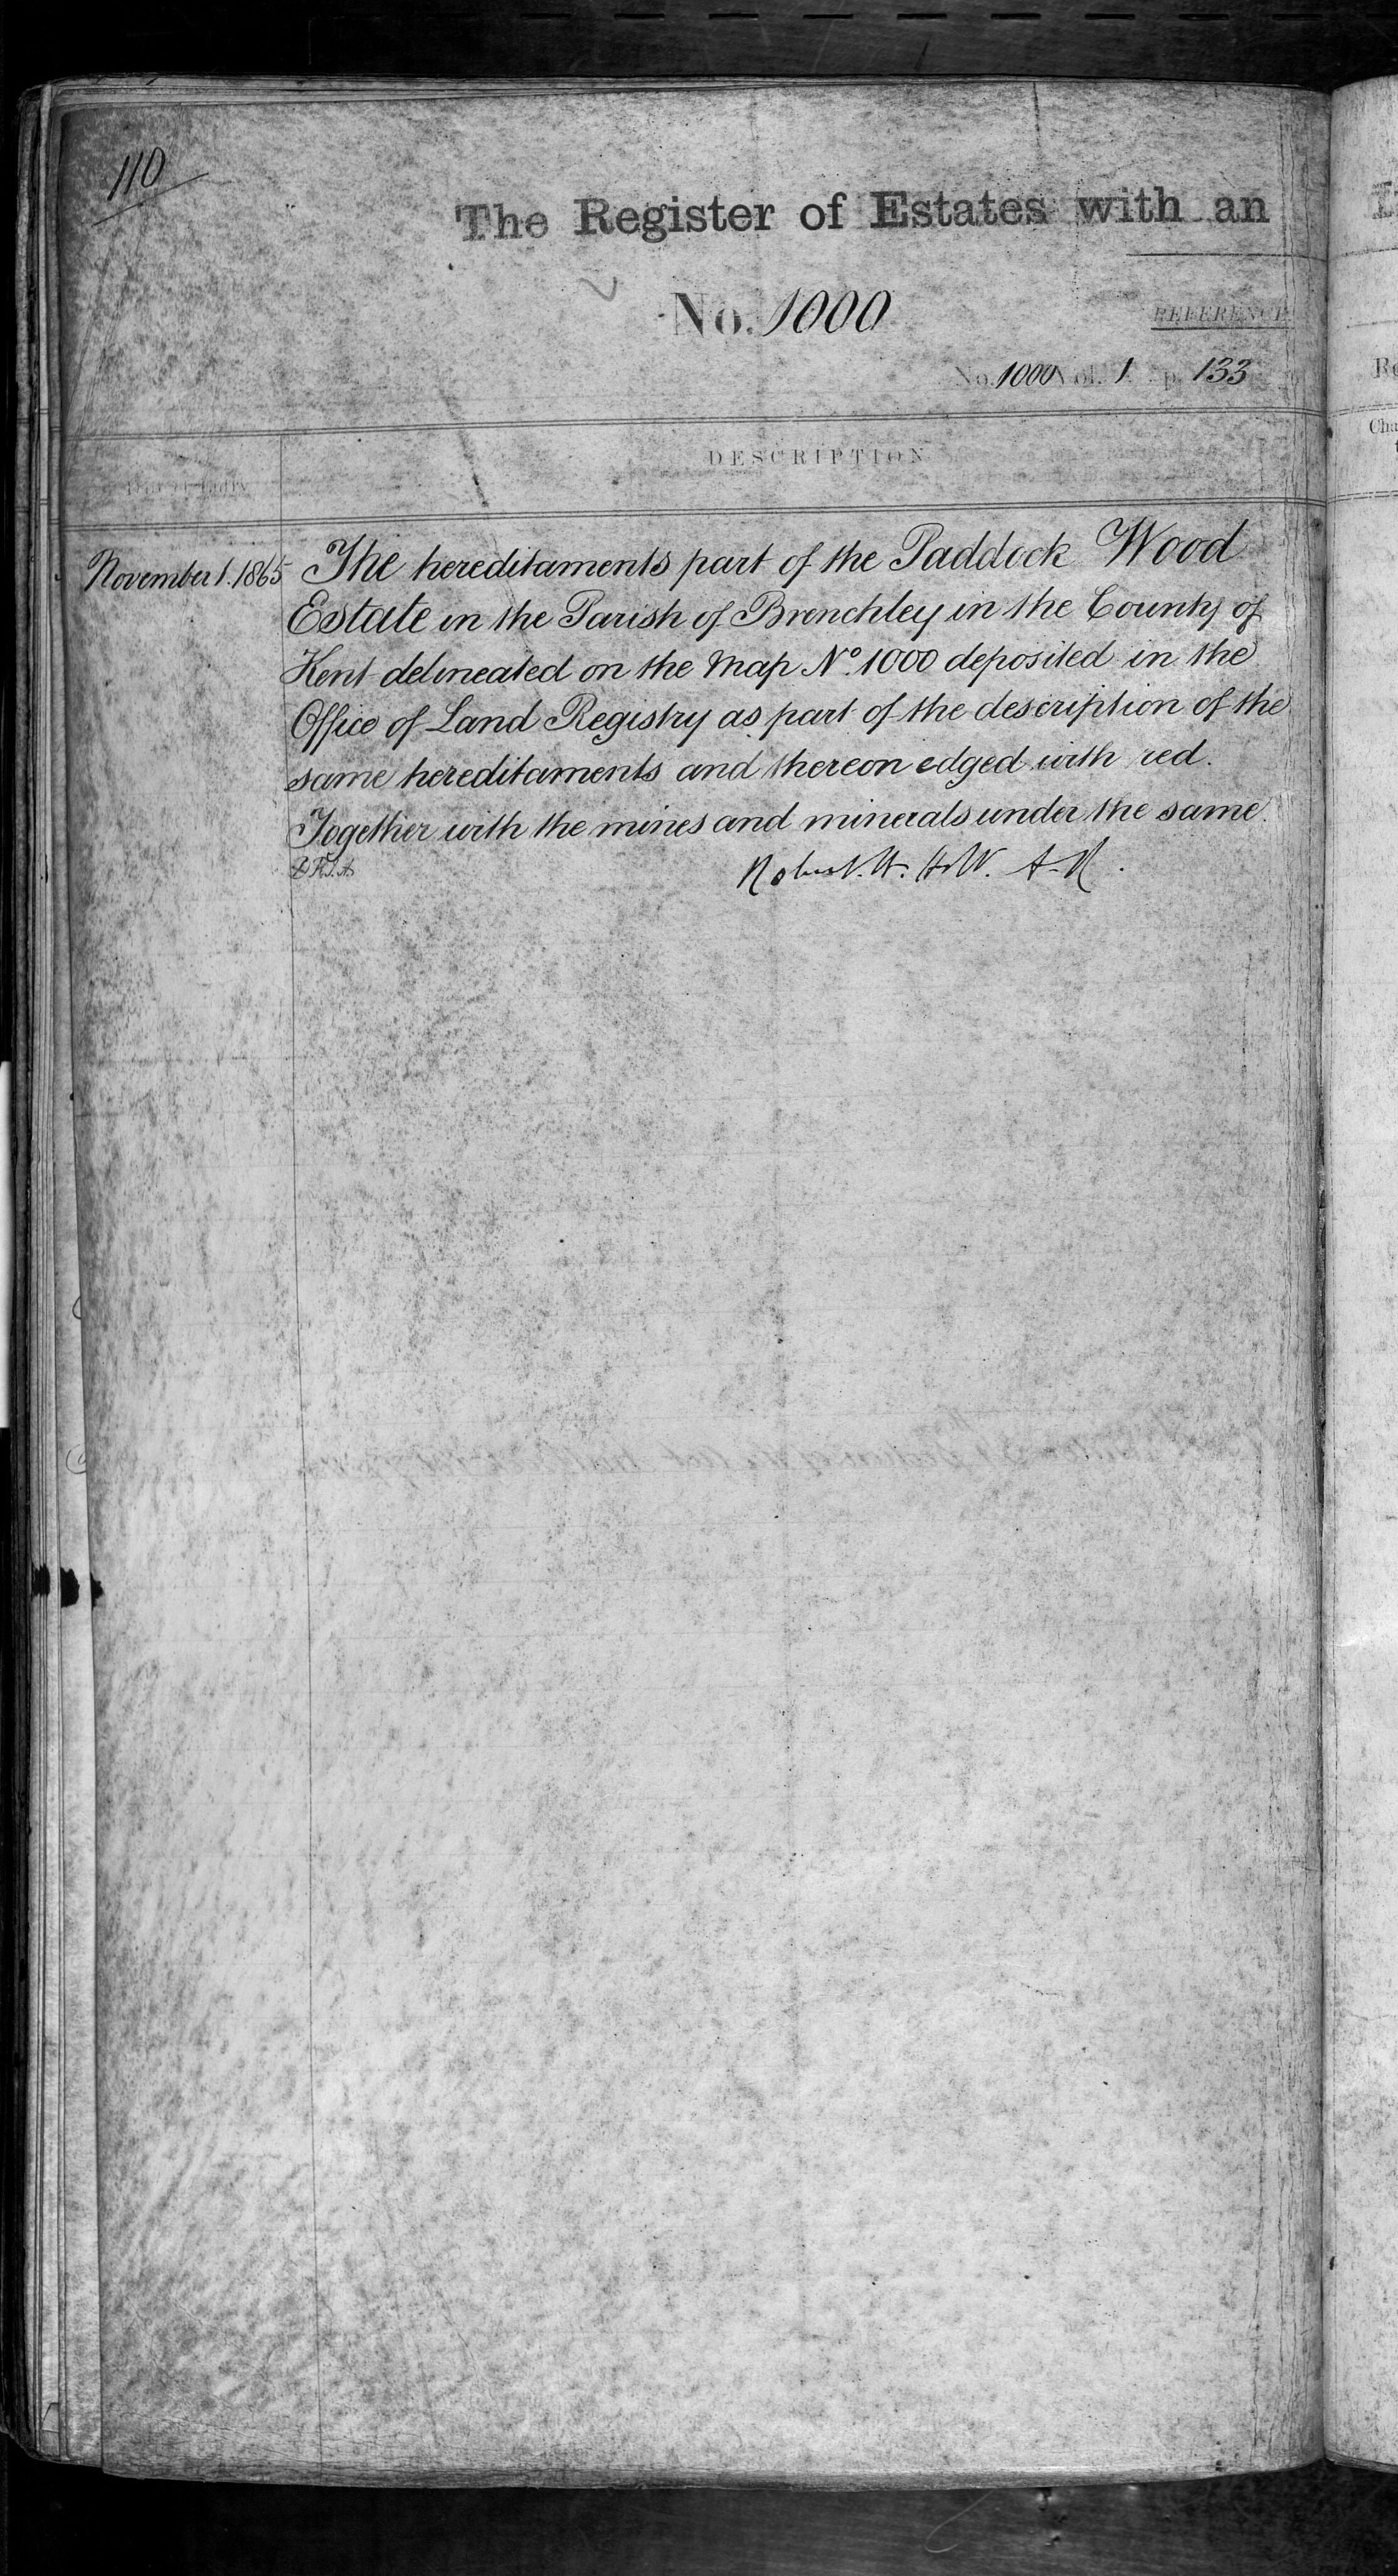 110
The Register of Estates with an
No. 1000
REFERENCE
No. 1000 Vol. 1 p. 133
DESCRIPTION
Date of Entry
November 1. 1865 The hereditaments part of the Paddock Wood
Estate in the Parish of Brenchley in the County of
Kent delineated on the Map No. 1000 deposited in the
Office of Land Registry as part of the description of the
same hereditaments and thereon edged with red.
Together with the mines and minerals under the same.
Robert. W. A-R.